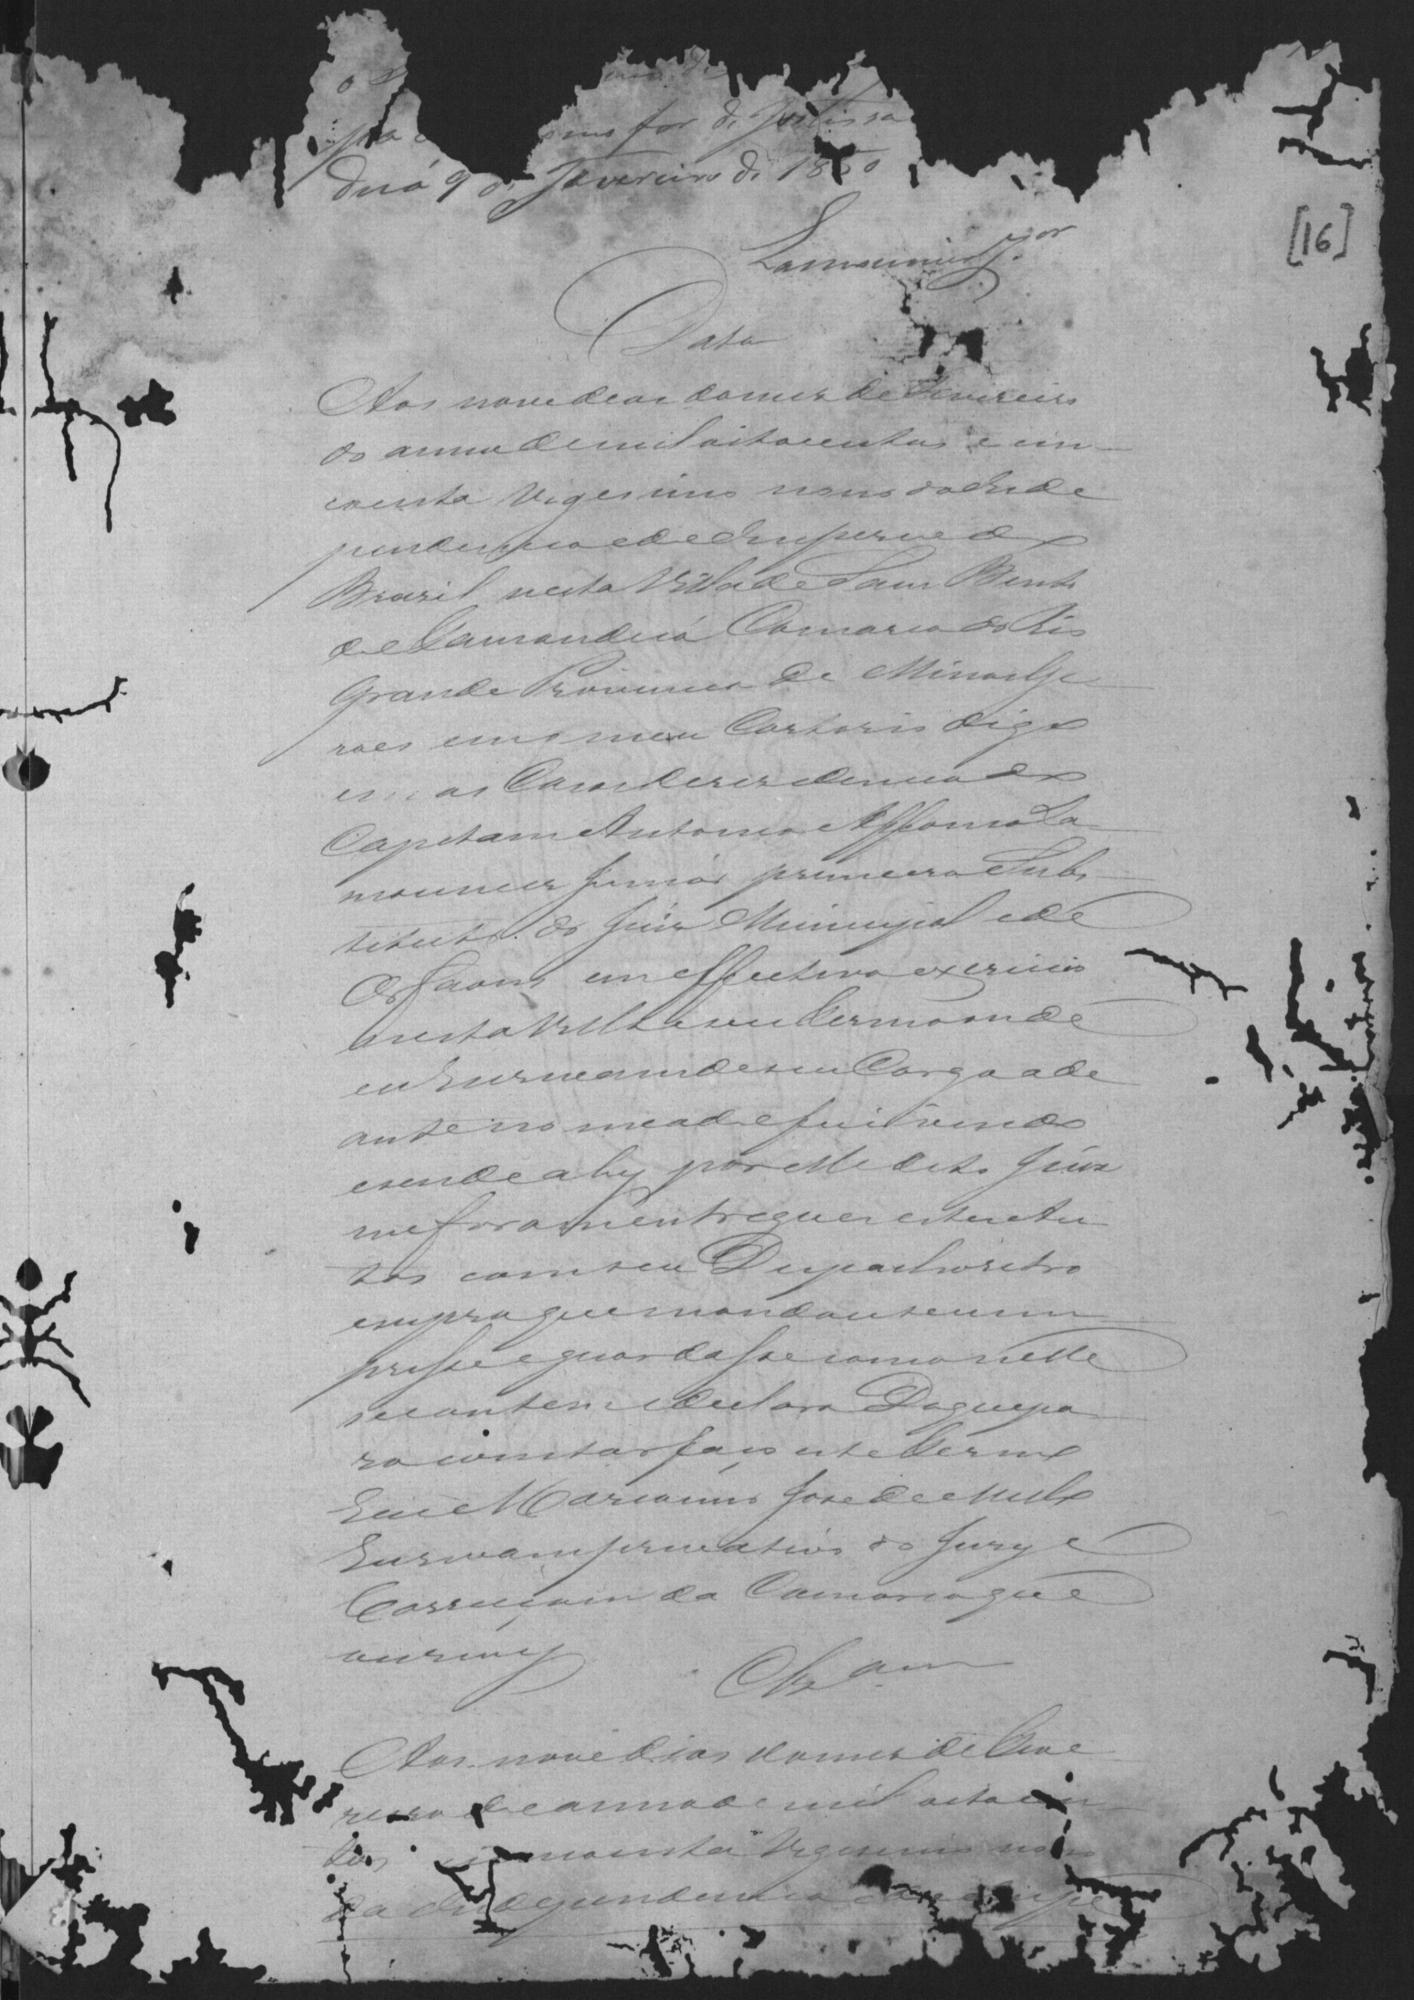 for de Justissa
duá 9 de Fevereiro de 1850
Lamounier J.or
[16]
Data
Aos nove dias do mes de Fevereiro
do anno de mil oitocentos e cin
coenta vigesimo nono da Inde
pendencia e do Imperio do
Brazil nesta Villa de Sam Bento
de Tamanduá Comarca do Rio
Grande Provincia de Minas Ge
raes em o meu Cartorio digo
em as Casas de rezidencia do
Capitam Antonio Affonso La
mounier Junior primeiro Subs
tituto do Juiz Municipal e de
Orfaons em effectivo exercicio
nesta Villa e seu Termo onde
eu Escrivam de seu Cargo a de
ante nomeado fui vindo
e sendo ahy por elle dito Juiz
me foram entregues estes Au
tos com seu Despacho retro
e supra que mandou se cum
prisse e guardasse como nelle
se contem e declara Do que pa
ra constar faço este Termo
Eu Marianno Joze de Mello
Escrivam privativo do Jury e
Correiçam da Comarca que
escrevy
Clz.am
Aos nove dias do mes de Feve
reiro do anno de mil oitocen
tos cincoenta Vigesimo nono
da Independencia e do Impe